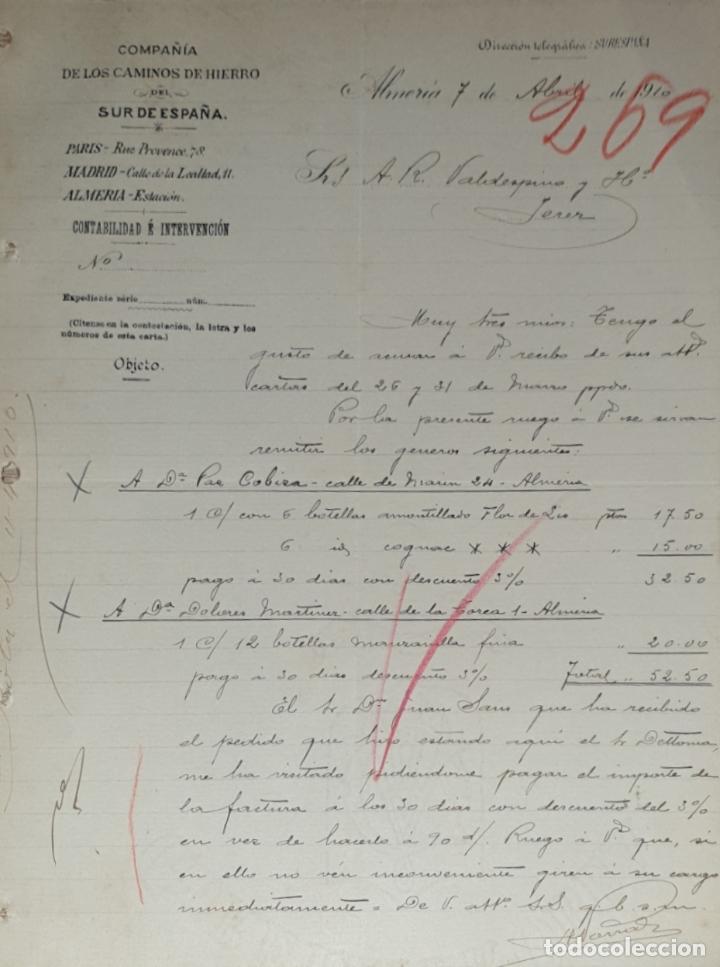 COMPAÑÍA
DE LOS CAMINOS DE HIERRO
DEL
SUR DE ESPAÑA.
PARIS - Rue Provence, 78.
MADRID - Calle de la Lealtad, 11.
ALMERIA - Estación.
CONTABILIDAD É INTERVENCIÓN
Nº
Expediente série núm.
(Cítense en la contestación, la letra y los
números de esta carta.)
Objeto.
Dirección telegráfica: SURESPAÑA
Almería 7 de Abril de 1910
269
Srs A. R. Valdespino y Hº
Jerez
Muy Sres mios: Tengo el
gusto de acusar á Vs. recibo de sus attas
cartas del 26 y 31 de Marzo ppdo.
Por la presente ruego á Vs. se sirvan
remitir los generos siguientes:
A Dª Paz Cobiza - calle de Marin 24 - Almeria
1 C/ con 6 botellas amontillado Flor de Lis ptas 17.50
6 id cognac * * * " 15.00
pago á 30 dias con descuento 3% 32.50
A Dª Dolores Martinez - calle de la Torca 1 - Almeria
1 C/ 12 botellas manzanilla fina " 20.00
pago á 30 dias descuento 3% Total " 52.50
El Sr Dn Juan Sans que ha recibido
el pedido que hizo estando aquí el Sr Dettoma,
me ha visitado pidiendome pagar el importe de
la factura á los 30 dias con descuento del 3%
en vez de hacerlo á 90 d/. Ruego á Vs. que, si
en ello no vén inconveniente giren á su cargo
inmediatamente = De V. atto. S.S. q. b. s. m.
11-4-910.
todocoleccion